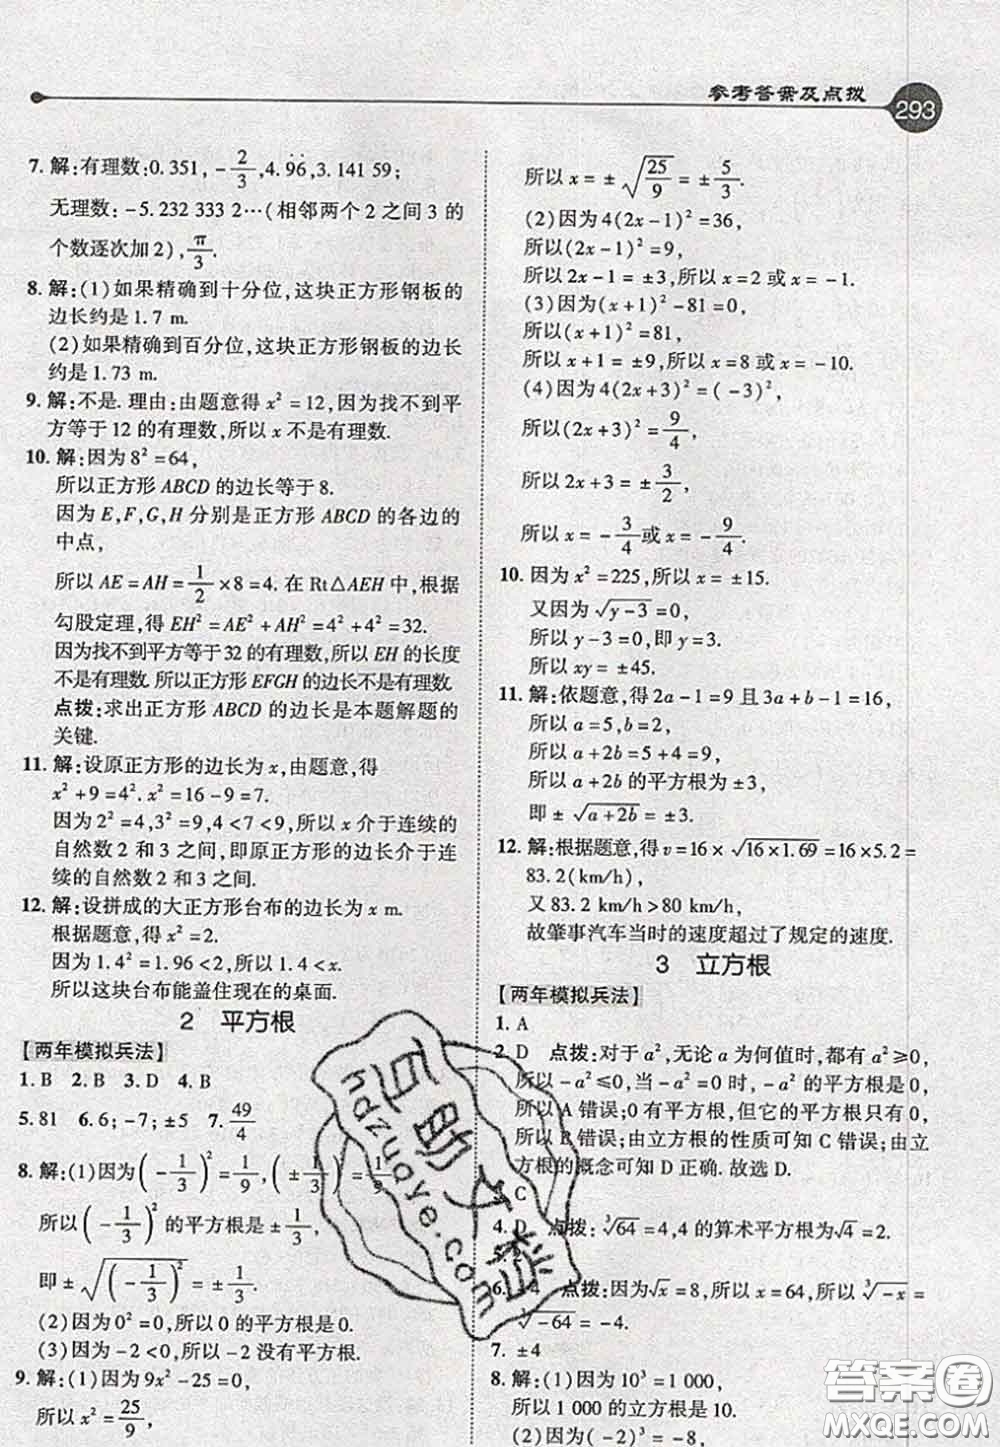 参考答案及点拨 293
7. 解:有理数:0.351,-2/3,4.9̇6̇,3.141 59;
无理数:-5.232 333 2…(相邻两个2之间3的
个数逐次加2),π/3.
8. 解:(1)如果精确到十分位,这块正方形钢板的
边长约是1.7 m.
(2)如果精确到百分位,这块正方形钢板的边长
约是1.73 m.
9. 解:不是. 理由:由题意得x²=12,因为找不到平
方等于12的有理数,所以x不是有理数.
10. 解:因为8²=64,
所以正方形ABCD的边长等于8.
因为E,F,G,H分别是正方形ABCD的各边的
中点,
所以AE=AH=1/2×8=4. 在Rt△AEH中,根据
勾股定理,得EH²=AE²+AH²=4²+4²=32.
因为找不到平方等于32的有理数,所以EH的长度
不是有理数.所以正方形EFGH的边长不是有理数.
点拨:求出正方形ABCD的边长是本题解题的
关键.
11. 解:设原正方形的边长为x,由题意,得
x²+9=4². x²=16-9=7.
因为2²=4,3²=9,4<7<9,所以x介于连续的
自然数2和3之间,即原正方形的边长介于连
续的自然数2和3之间.
12. 解:设拼成的大正方形台布的边长为x m.
根据题意,得x²=2.
因为1.4²=1.96<2,所以1.4<x.
所以这块台布能盖住现在的桌面.
2 平方根
【两年模拟兵法】
1. B 2. B 3. D 4. B
5. 81 6. 6;-7;±5 7. 49/4
8. 解:(1)因为(-1/3)²=1/9,(±1/3)²=1/9,
所以(-1/3)²的平方根是±1/3,
即±√((-1/3)²)=±1/3.
(2)因为0²=0,所以0的平方根是0.
(3)因为-2<0,所以-2没有平方根.
9. 解:(1)因为9x²-25=0,
所以x²=25/9,
所以x=±√(25/9)=±5/3.
(2)因为4(2x-1)²=36,
所以(2x-1)²=9,
所以2x-1=±3,所以x=2或x=-1.
(3)因为(x+1)²-81=0,
所以(x+1)²=81,
所以x+1=±9,所以x=8或x=-10.
(4)因为4(2x+3)²=(-3)²,
所以(2x+3)²=9/4,
所以2x+3=±3/2,
所以x=-3/4或x=-9/4.
10. 因为x²=225,所以x=±15.
又因为√(y-3)=0,
所以y-3=0,即y=3.
所以xy=±45.
11. 解:依题意,得2a-1=9且3a+b-1=16,
所以a=5,b=2,
所以a+2b=5+4=9,
所以a+2b的平方根为±3,
即±√(a+2b)=±3.
12. 解:根据题意,得v=16×√(16×1.69)=16×5.2=
83.2(km/h)
又83.2 km/h>80 km/h,
故肇事汽车当时的速度超过了规定的速度.
3 立方根
【两年模拟兵法】
1. A
2. D 点拨:对于a²,无论a为何值时,都有a²≥0,
所以-a²≤0,当-a²=0时,-a²有平方根,
所以A错误;0有平方根,但它的平方根只有0,
所以B错误;由立方根的性质可知C错误;由立
方根的概念可知D正确. 故选D.
C
4. D 点拨:∛64=4,4的算术平方根为√4=2.
5. 2
6. -4 点拨:因为√x=8,所以x=64,所以∛(-x)=
∛(-64)=-4.
7. ±4
8. 解:(1)因为10³=1 000,
所以1 000的立方根是10.
(2)因为(-2)³=-8,
百助文科
hdzuoye.com
答案圈
MXQE.COM